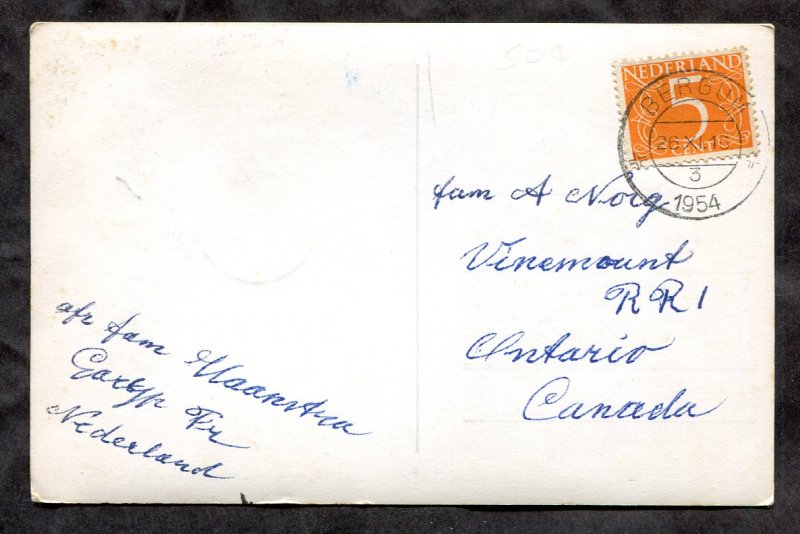 50¢
NEDERLAND
5
CENT
BERGUM
26 XI 16
3
1954
fam A Norg
Vinemount
RR 1
Ontario
Canada
afz fam Maanstra
Garyp Fr
Nederland